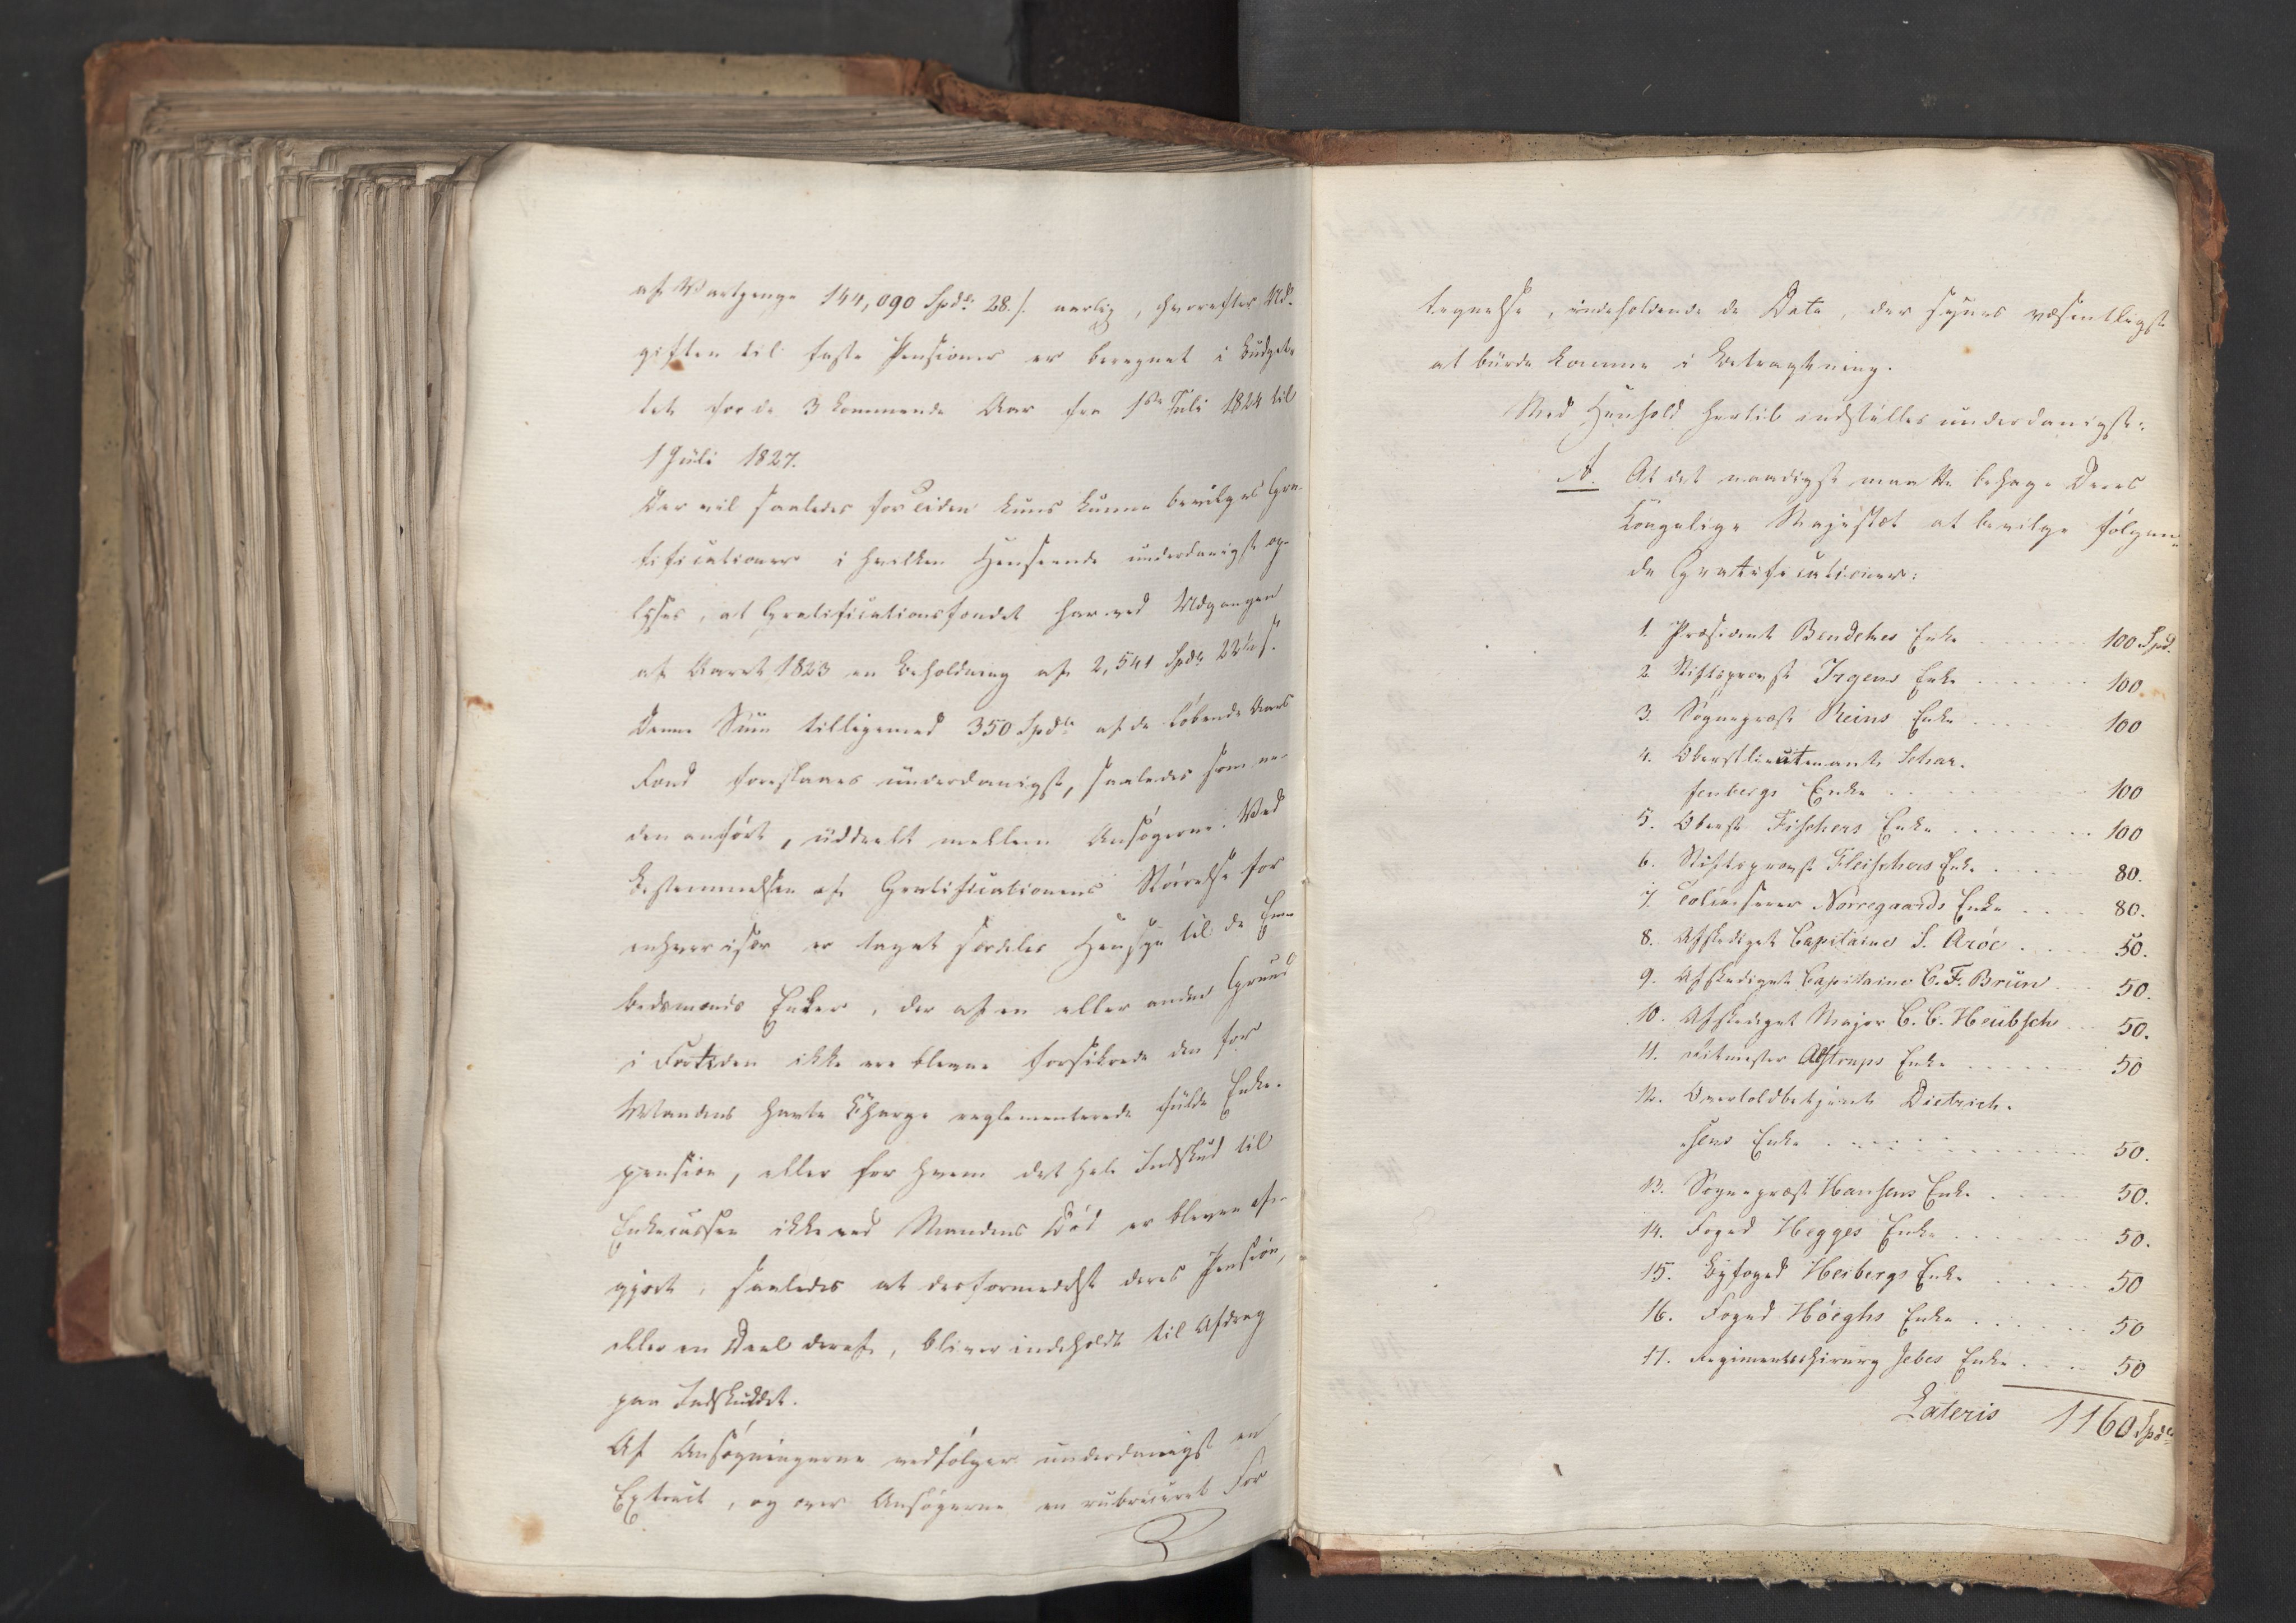 af Vartpenge 144,090 Spdlr 28 s. aarlig, hvorefter Ud-
giften til faste Pensioner er beregnet i Budget-
tet for de 3 kommende Aar fra 1ste Juli 1824 til
1 Juli 1827.
Der vil saaledes for Tiden kuns kunne bevilges Gra-
tificationer i hvilken Henseende underdanigst op-
lyses, at Gratificationsfondet har ved Udgangen
af Aaret 1823 en Beholdning af 2,541 Spdlr 22 s.
Denne Sum tilligemed 350 Spdlr af de løbende Aars
Fond foreslaaes underdanigst, saaledes som ne-
den anført, uddeelt mellem Ansøgerne. Ved
Bestemmelsen af Gratificationens Størrelse for
enhver især er taget særdeles Hensyn til de Em-
bedsmænds Enker, der af en eller anden Grund
i Fortiden ikke ere blevne forsikrede den for
Mandens havte Charge reglementerede fulde Enke-
pension, eller for hvem det hele Indskud til
Enkecassen ikke ved Mandens Død er bleven af-
gjort, saaledes at derformedelst deres Pension,
eller en Deel deraf, bliver indeholdt til Afdrag
paa Indskuddet.
Af Ansøgningerne vedfølger underdanigst en
Extract, og over Ansøgerne en rubriceret For
tegnelse, indeholdende de Data, der synes væsentligst
at burde komme i Betragtning.
Med Henhold hertil indstilles underdanigst:
A. At det naadigst maatte behage Deres
Kongelige Majestæt at bevilge følgen-
de Gratificationer:
1. Præsident Bendekes Enke 100 Spd.
2. Stiftsprovst Irgens Enke 100
3. Sognepræst Reins Enke 100
4. Oberstlieutenant Schar-
fenbergs Enke 100
5. Oberst Fischers Enke 100
6. Stiftsprovst Fleischers Enke 80.
7. Toldinspecteur Nørregaards Enke 80.
8. Afskediget Capitaine S. Arøe 50.
9. Afskediget Capitaine C. F. Brun 50.
10. Afskediget Major C. C. Heubsch 50.
11. Ritmester Alstrups Enke 50
12. Overtoldbetjent Dietrich-
sens Enke 50.
13. Sognepræst Hansens Enke 50.
14. Foged Hegges Enke 50.
15. Byfoged Heibergs Enke 50
16. Foged Høeghs Enke 50
17. Regimentschirurg Jebes Enke 50
Lateris 1160 Spdlr